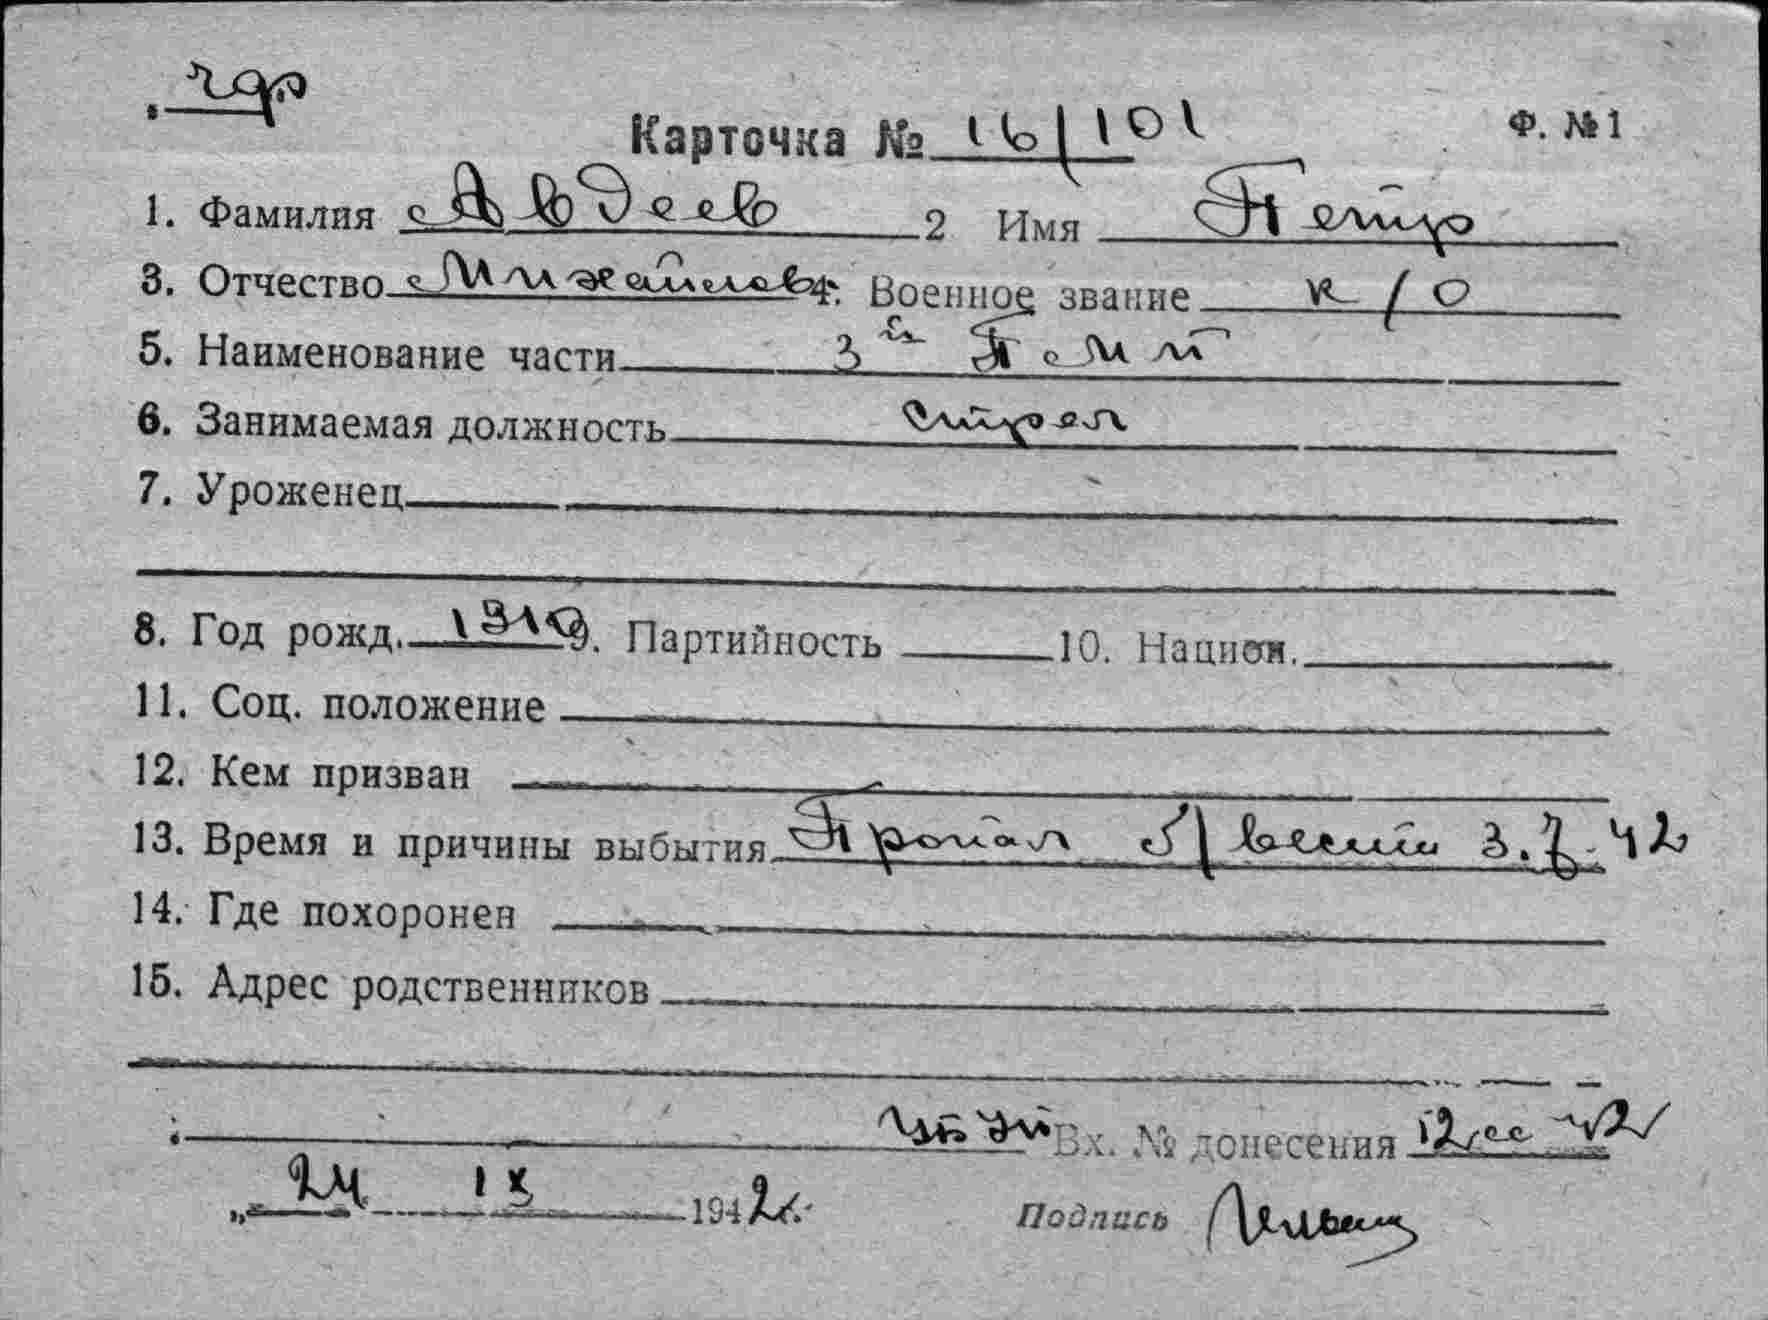 Карточка № 16/101 Ф. №1
1. Фамилия Авдеев 2 Имя Петр
3. Отчество Михайлов 4. Военное звание к/о
5. Наименование части 3й П омп
6. Занимаемая должность Стрел
7. Уроженец
8. Год рожд. 1910 9. Партийность 10. Национ.
11. Соц. положение
12. Кем призван
13. Время и причины выбытия Пропал б/вести 3.7.42
14. Где похоронен
15. Адрес родственников
Вх. № донесения 12сс 42
„ 24 IX 1942г.
Подпись